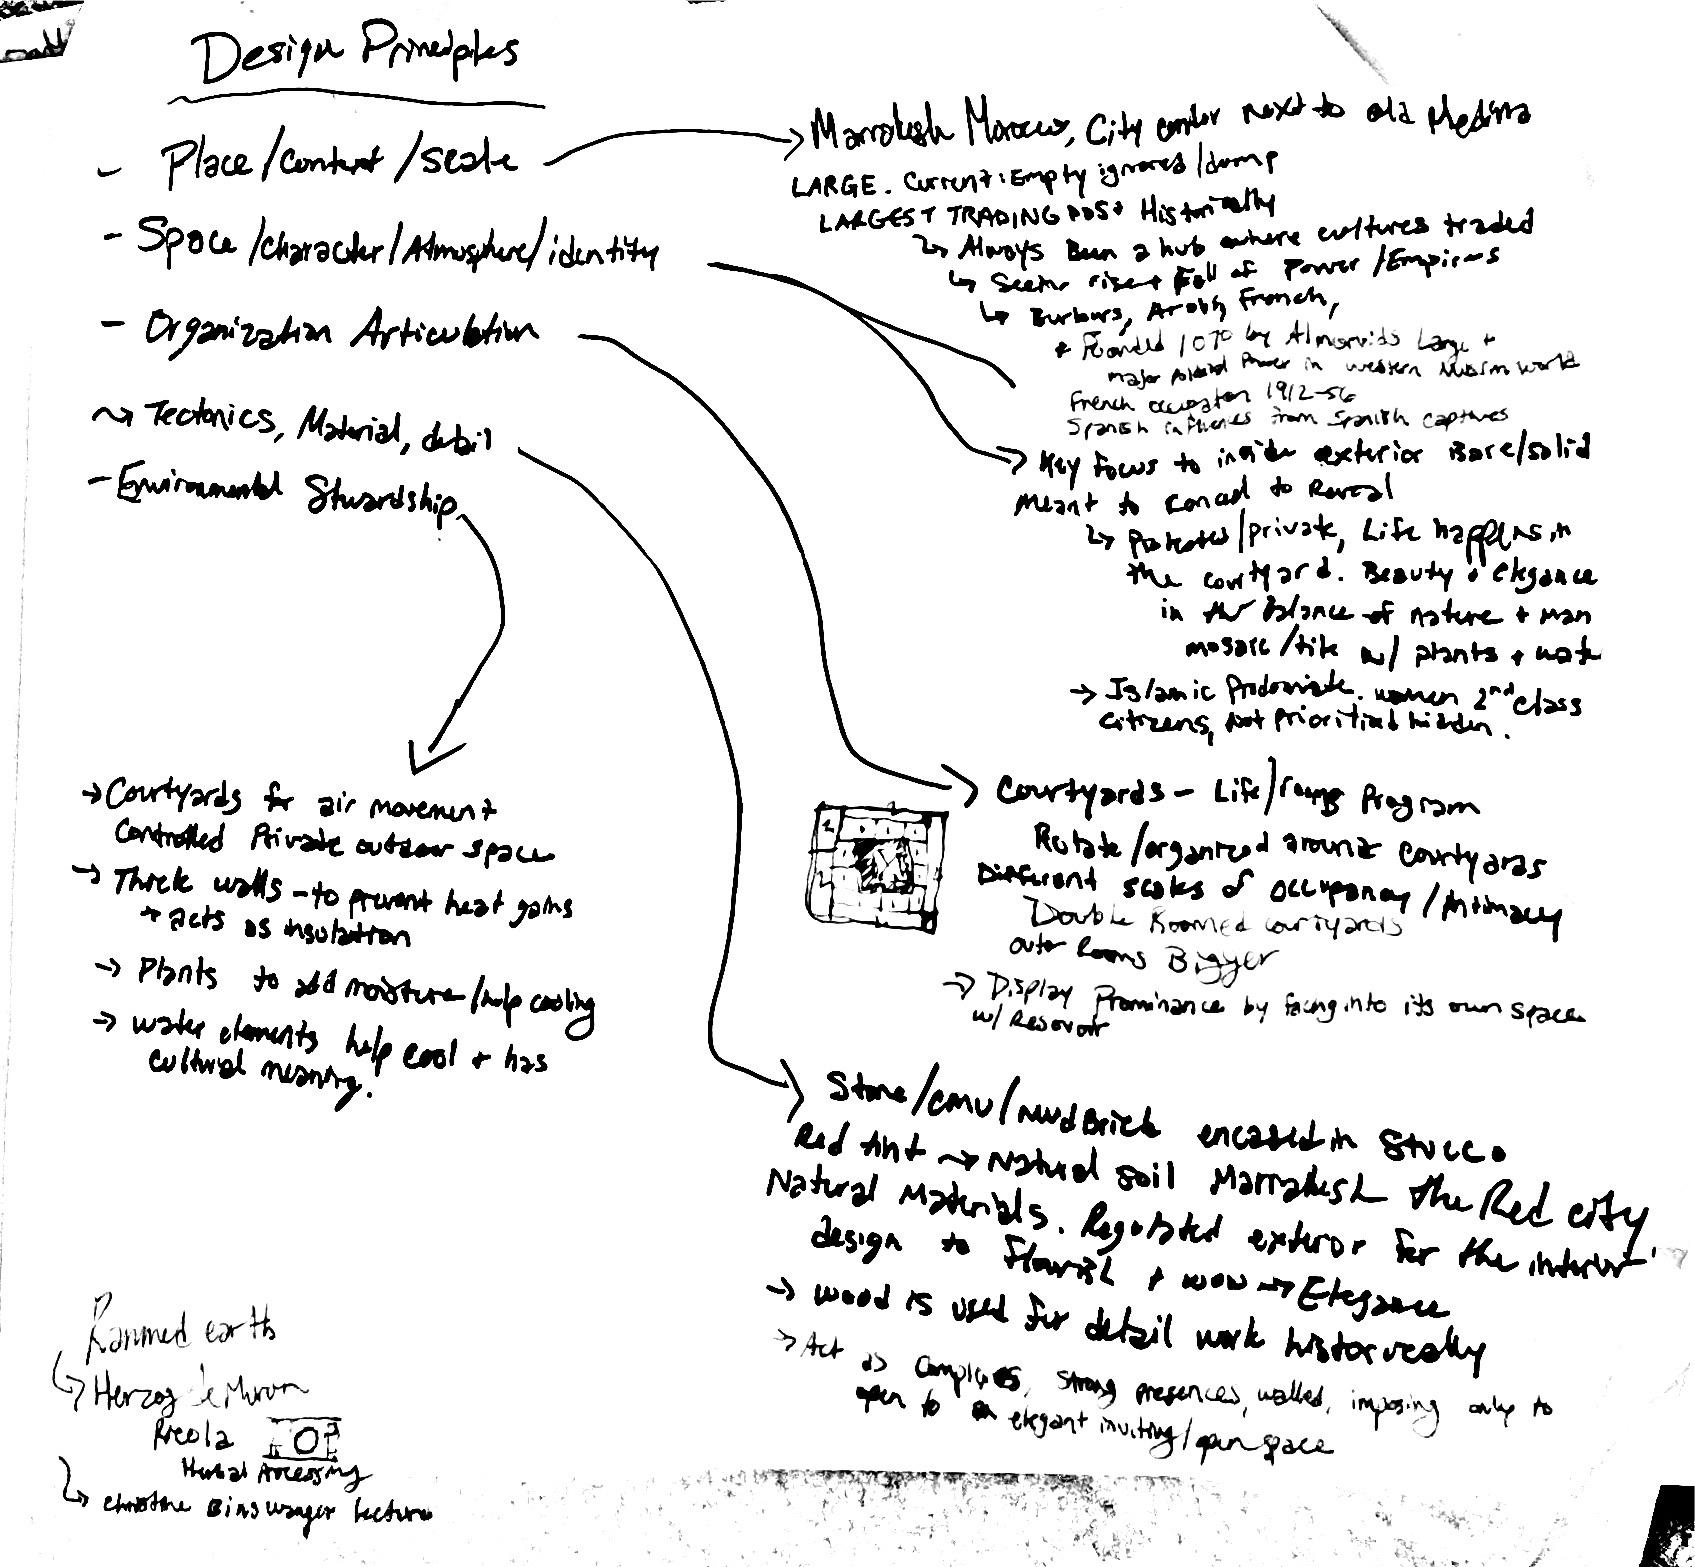 Design Principles
- Place/Context/Scale
- Space/Character/Atmosphere/identity
- Organization Articulation
Tectonics, Material, detail
- Environmental Stwardship
→ Marrakesh Morocco, City center next to old Medina
LARGE. Current: Empty ignored/dump
LARGEST TRADING POST Historically
↳ Always Been a hub where cultures traded
↳ Seen rise + Fall of Power/Empires
↳ Burburs, Arabs, French,
+ Founded 1070 by Almoravids Large +
major Power in western Muslim world
French occupation 1912-56
Spanish influences from Spanish captures
→ Key Focus to inside exterior Bare/solid
Meant to conceal to Reveal
↳ Protected/private, Life happens in
the courtyard. Beauty + elegance
in the Balance of nature + man
mosaic/tile w/ plants + water
→ Islamic Predominate. women 2nd class
citizens, not prioritized hidden.
→ Courtyards - Life/rooms Program
Rotate/organized around courtyards
Different scales of occupancy/intimacy
Double Roomed courtyards
outer Rooms Bigger
→ Display Prominance by facing into its own space
w/ Resovoir
→ Courtyards for air movement
Controlled Private outdoor space
→ Thick walls - to prevent heat gains
+ acts as insulation
→ Plants to add moisture/help cooling
→ water elements help cool + has
cultural meaning.
→ Stone/CMU/mudBrick encased in Stucco
Red tint → Natural soil Marrakesh the Red city
Natural Materials. Regulated exterior for the interior
design to flourish + wow → Elegance
→ wood is used for detail work historically
→ Act as complexes, strong presences, walled, imposing only to
open to an elegant inviting/open space
Rammed earth
↳ Herzog de Muron
Ricola
Herbal Processing
↳ Christine Binswanger lecture